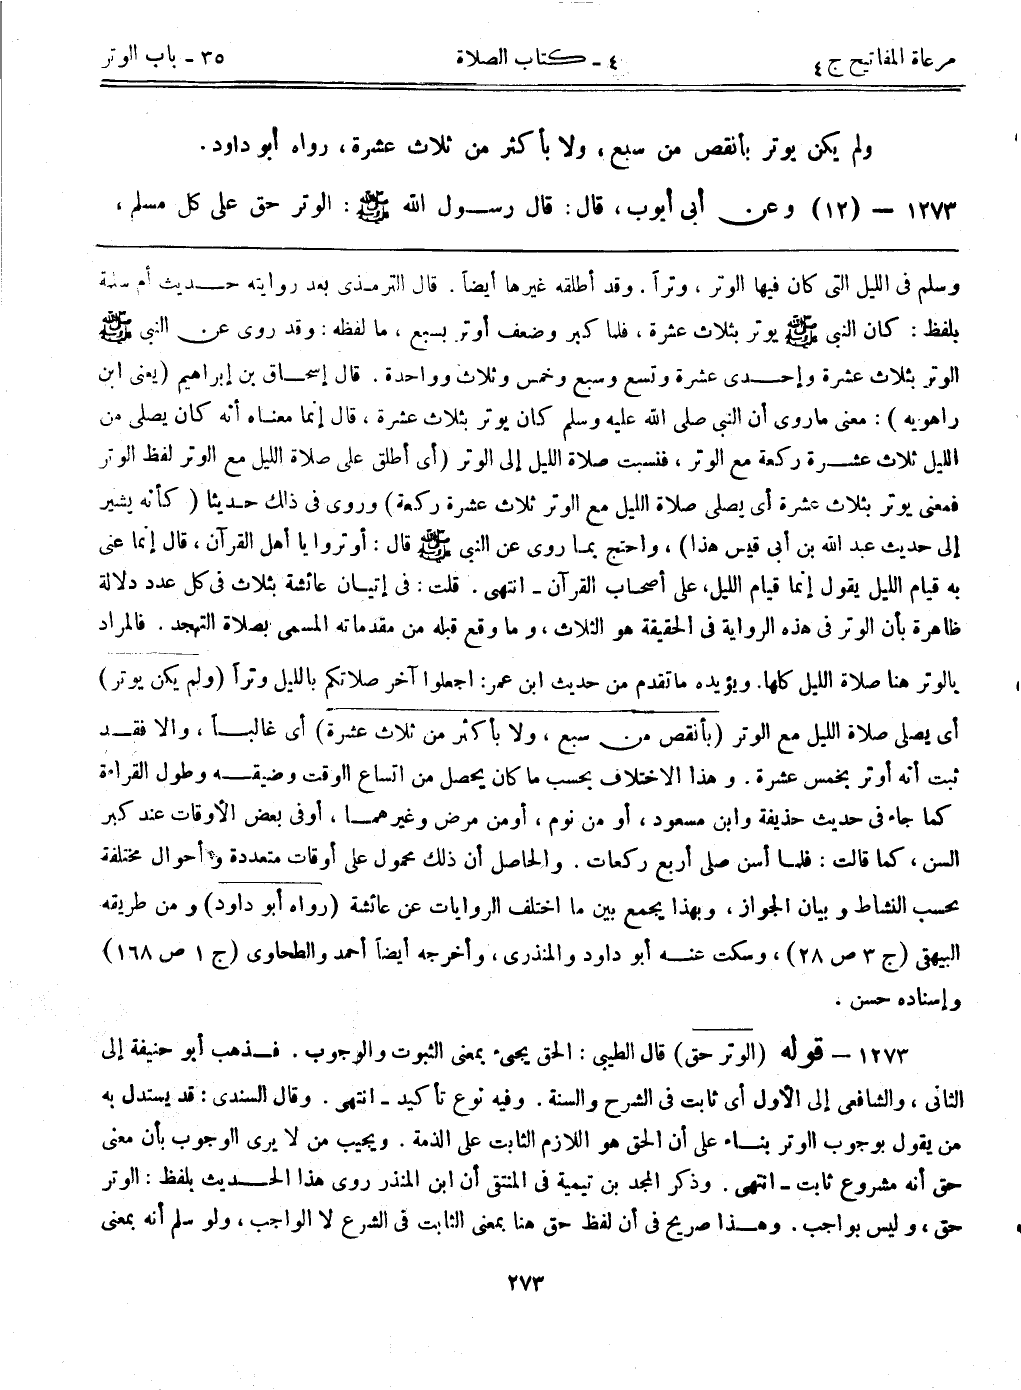 مرعاة المفاتيح ج ٤
٤ - كتاب الصلاة
٣٥ - باب الوتر
ولم يكن يوتر بأنقص من سبع، ولا بأكثر من ثلاث عشرة، رواه أبو داود.
١٢٧٣ – (١٢) وعن أبى أيوب، قال: قال رسول الله ﷺ: الوتر حق على كل مسلم،
وسلم فى الليل التى كان فيها الوتر، وتراً. وقد أطلقه غيرها أيضاً. قال الترمذى بعد روايته حديث أم سلمة
بلفظ: كان النبى ﷺ يوتر بثلاث عشرة، فلما كبر وضعف أوتر بسبع، ما لفظه: وقد روى عن النبى ﷺ
الوتر بثلاث عشرة وإحدى عشرة وتسع وسبع وخمس وثلاث وواحدة. قال إسحاق بن إبراهيم (يعنى ابن
راهويه): معنى ماروى أن النبى صلى الله عليه وسلم كان يوتر بثلاث عشرة، قال إنما معناه أنه كان يصلى من
الليل ثلاث عشرة ركعة مع الوتر، فنسبت صلاة الليل إلى الوتر (أى أطلق على صلاة الليل مع الوتر لفظ الوتر
فمعنى يوتر بثلاث عشرة أى يصلى صلاة الليل مع الوتر ثلاث عشرة ركعة) وروى فى ذلك حديثا (كأنه يشير
إلى حديث عبد الله بن أبى قيس هذا)، واحتج بما روى عن النبى ﷺ قال: أوتروا يا أهل القرآن، قال إنما عنى
به قيام الليل يقول إنما قيام الليل، على أصحاب القرآن - انتهى. قلت: فى إتيان عائشة بثلاث فى كل عدد دلالة
ظاهرة بأن الوتر فى هذه الرواية فى الحقيقة هو الثلاث، و ما وقع قبله من مقدماته المسمى بصلاة التهجد. فالمراد
بالوتر هنا صلاة الليل كلها. ويؤيده ماتقدم من حديث ابن عمر: اجعلوا آخر صلاتكم بالليل وتراً (ولم يكن يوتر)
أى يصلى صلاة الليل مع الوتر (بأنقص من سبع، ولا بأكثر من ثلاث عشرة) أى غالبا، والا فقد
ثبت أنه أوتر بخمس عشرة. و هذا الاختلاف بحسب ما كان يحصل من اتساع الوقت وضيقه وطول القراءة
كما جاء فى حديث حذيفة وابن مسعود، أو من نوم، أومن مرض وغيرهما، أوفى بعض الأوقات عند كبر
السن، كما قالت: فلما أسن صلى أربع ركعات. والحاصل أن ذلك محمول على أوقات متعددة و أحوال مختلفة
بحسب النشاط و بيان الجواز، وبهذا يجمع بين ما اختلف الروايات عن عائشة (رواه أبو داود) و من طريقه
البيهقى (ج ٣ ص ٢٨)، وسكت عنه أبو داود والمنذرى، وأخرجه أيضاً أحمد والطحاوى (ج ١ ص ١٦٨)
وإسناده حسن.
١٢٧٣ – قوله (الوتر حق) قال الطيبى: الحق يجىء بمعنى الثبوت والوجوب. فذهب أبو حنيفة إلى
الثانى، والشافعى إلى الأول أى ثابت فى الشرح والسنة. وفيه نوع تأكيد - انتهى. وقال السندى: قد يستدل به
من يقول بوجوب الوتر بناء على أن الحق هو اللازم الثابت على الذمة. ويجيب من لا يرى الوجوب بأن معنى
حق أنه مشروع ثابت - انتهى. وذكر المجد بن تيمية فى المنتقى أن ابن المنذر روى هذا الحديث بلفظ: الوتر
حق، و ليس بواجب. وهذا صريح فى أن لفظ حق هنا بمعنى الثابت فى الشرع لا الواجب، ولو سلم أنه بمعنى
٢٧٣